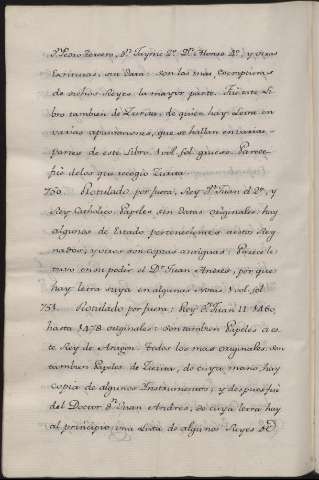 Dn. Pedro Tercero, Dn. Jayme 2o. Dn. Alonso 4o. y otras
Escrituras, sin Data: son las mas, Escripturas
de dichos Reyes la mayor parte. Fue este Li
bro tambien de Zurita, de quien hay Letra en
varias apuntaciones, que se hallan en varias
partes de este Libro. 1 vol. fol. grueso. Parece
fue de los que recogio Zurita.
750. Rotulado por fuera, Rey Dn. Juan el 2o. y
Rey Catholico. Papeles sin Datas originales hay
algunos de Estado pertenecientes a estos Rey
nados; y otros son copias antiguas: Parece le
tuvo en su poder el Dr. Juan Andres, por que
hay letra suya en algunas notas 1 vol. fol.
751. Rotulado por fuera: Rey Dn. Juan II 1460,
hasta 1478 originales: son tambien Papeles a es
te Rey de Aragon. Todos los mas originales son
tambien Papeles de Zurita, de cuya mano hay
copia de algunos Instrumentos; y despues fue
del Doctor Dn. Juan Andres, de cuya letra hay
al principio una Lista de algunos Reyes de